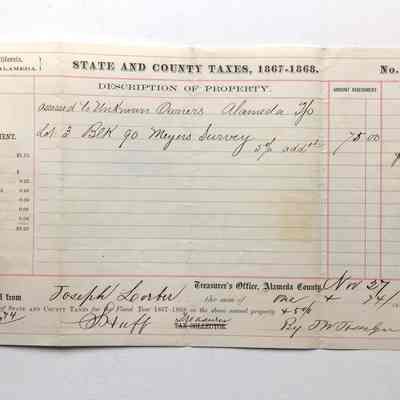 alifornia,
ALAMEDA.
STATE AND COUNTY TAXES, 1867-1868.
No.
DESCRIPTION OF PROPERTY.
AMOUNT ASSESSMENT.
assessed to Unknown Owners Alameda T/p
Lot 3 Blk 90 Meyers Survey
75 00
5% addtn
MENT.
Treasurer's Office, Alameda County,
Nov 27
d from
Joseph Lorber
the sum of
One + 74/
of STATE AND COUNTY TAXES for the Fiscal Year 1867-1868 on the above named property
+ 5%
74
S Huff
Treasurer
TAX COLLECTOR.
By